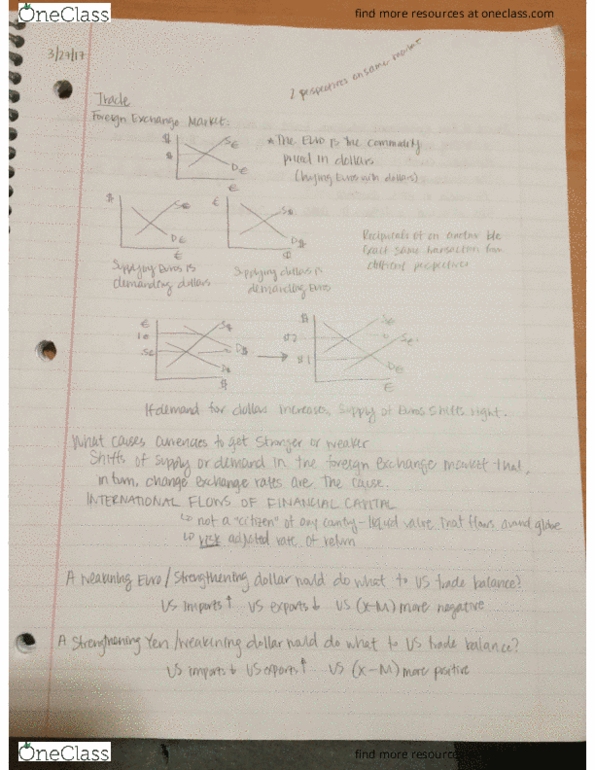 OneClass
find more resources at oneclass.com
3/27/17
2 perspectives on same market
Trade
Foreign Exchange Market:
$
$
S€
D€
€
* The Euro is the commodity
priced in dollars
(buying Euros with dollars)
$
S€
D€
€
€
D$
Reciprocals of on another b/c
Exact same transaction from
different perspectives
Supplying Euros is
demanding dollars
Supplying dollars is
demanding Euros
€
1€
.5€
S$
D$
D$
$
$
$2
$1
S€
S€
D€
€
If demand for dollars increases, supply of Euros shifts right.
What causes currencies to get stronger or weaker
Shifts of supply or demand in the foreign exchange market that,
in turn, change exchange rates are the cause.
INTERNATIONAL FLOWS OF FINANCIAL CAPITAL
↳ not a "citizen" of any country - liquid value that flows around globe
↳ risk adjusted rate of return
A Weakining Euro / Strengthening dollar would do what to US trade balance?
US imports ↑ US exports ↓ US (X-M) more negative
A Strengthening Yen / weakening dollar would do what to US trade balance?
US imports ↓ US exports ↑ US (X-M) more positive
OneClass
find more resources at oneclass.com